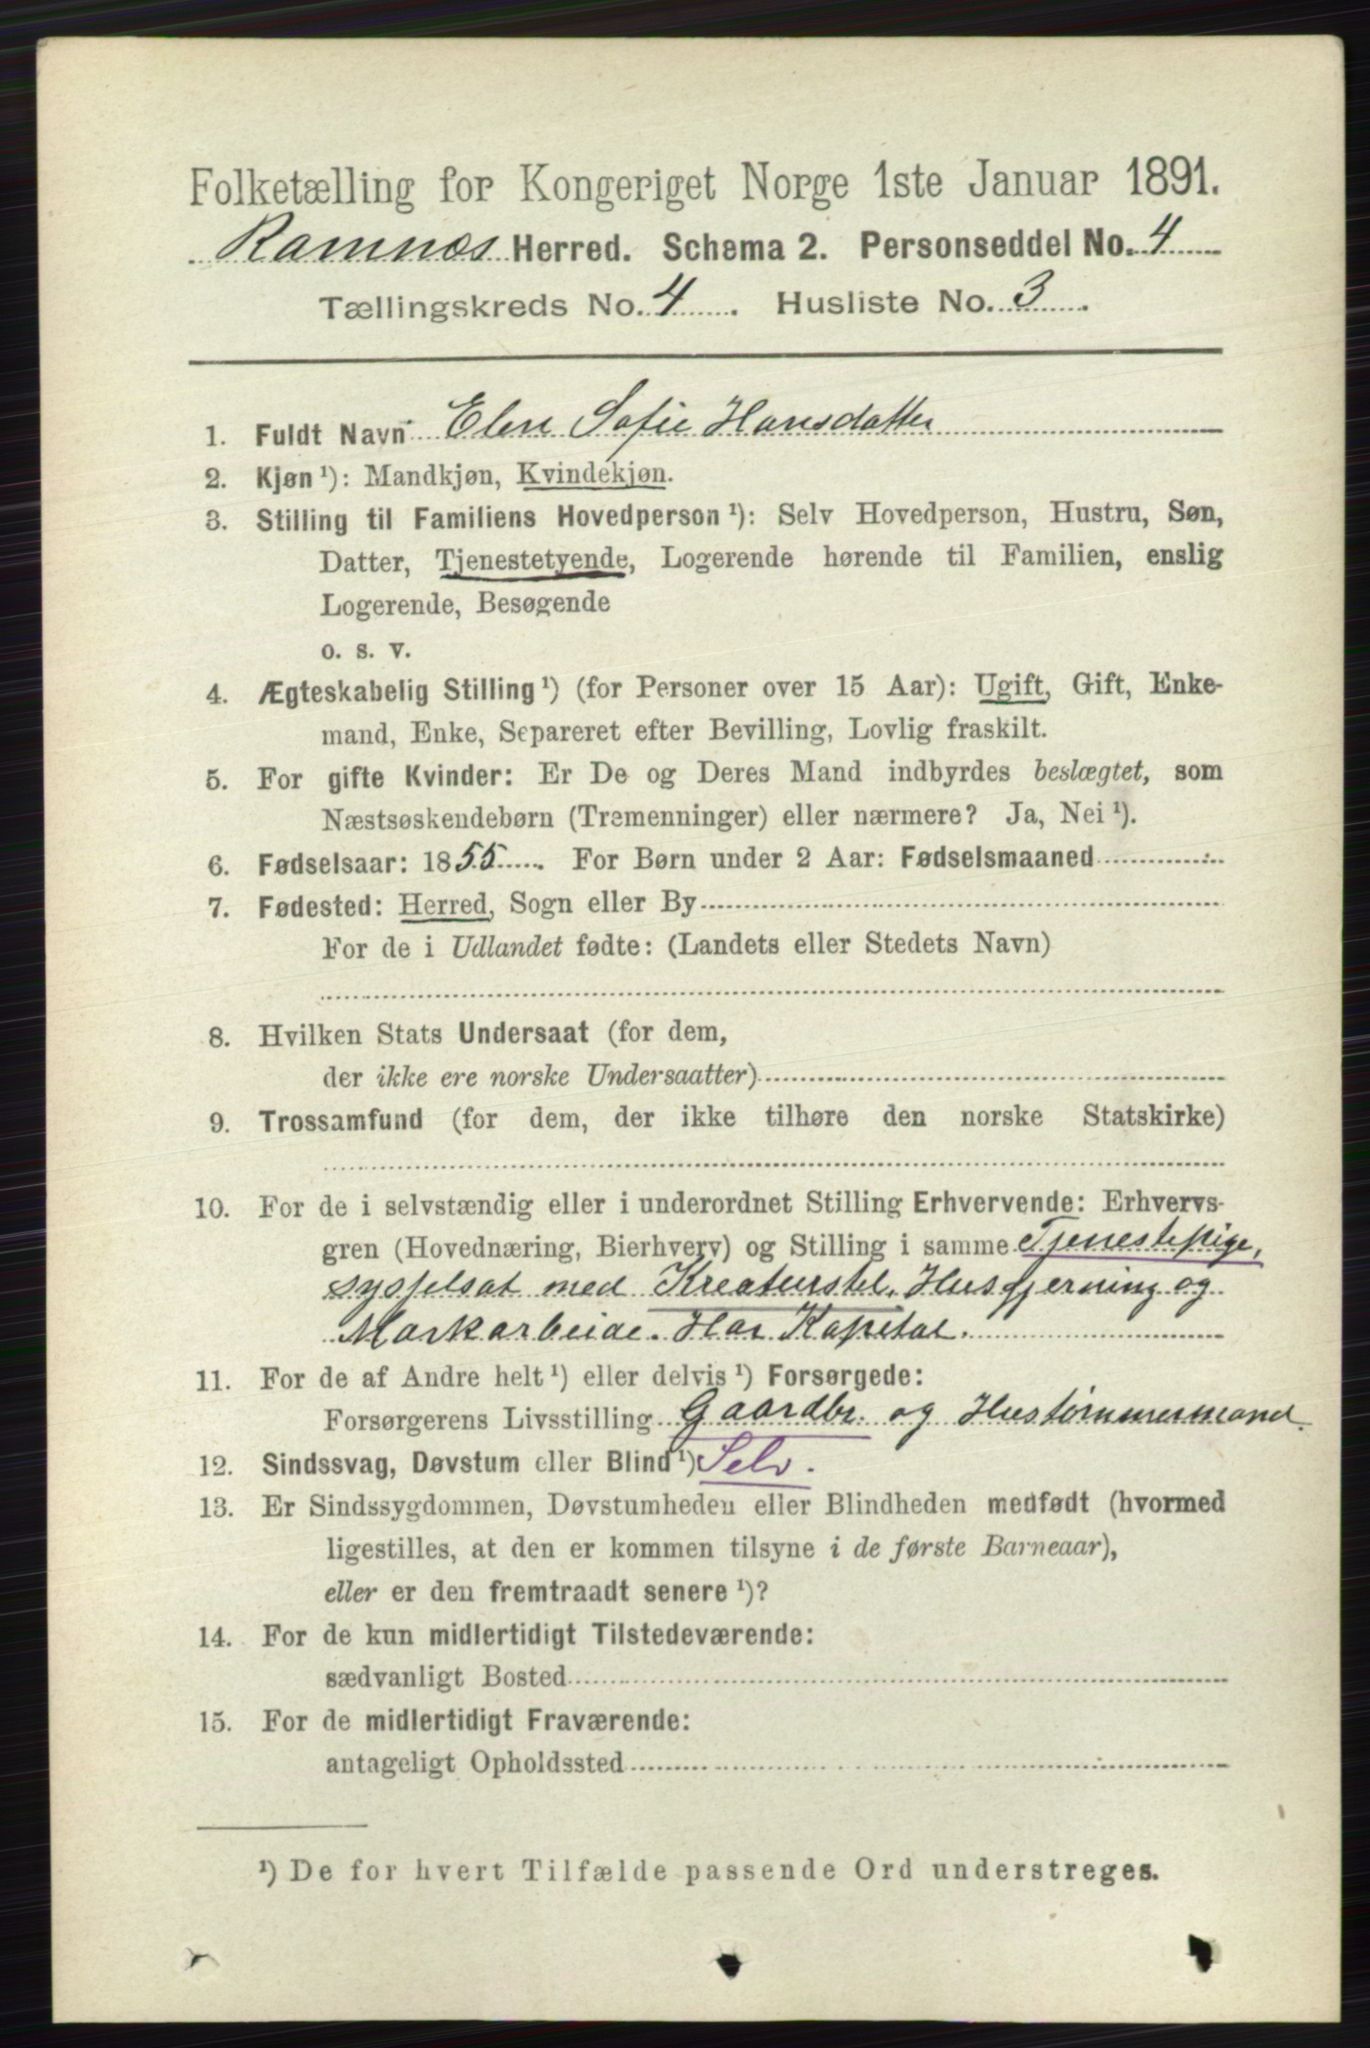 Folketælling for Kongeriget Norge 1ste Januar 1891.
Ramnæs Herred. Schema 2. Personseddel No. 4
Tællingskreds No. 4. Husliste No. 3.
1. Fuldt Navn Elen Sofie Hansdatter
2. Kjøn ¹): Mandkjøn, Kvindekjøn.
3. Stilling til Familiens Hovedperson ¹): Selv Hovedperson, Hustru, Søn,
Datter, Tjenestetyende, Logerende hørende til Familien, enslig
Logerende, Besøgende
o. s. v.
4. Ægteskabelig Stilling ¹) (for Personer over 15 Aar): Ugift, Gift, Enke-
mand, Enke, Separeret efter Bevilling, Lovlig fraskilt.
5. For gifte Kvinder: Er De og Deres Mand indbyrdes beslægtet, som
Næstsøskendebørn (Tremenninger) eller nærmere? Ja, Nei ¹).
6. Fødselsaar: 1855. For Børn under 2 Aar: Fødselsmaaned
7. Fødested: Herred, Sogn eller By
For de i Udlandet fødte: (Landets eller Stedets Navn)
8. Hvilken Stats Undersaat (for dem,
der ikke ere norske Undersaatter)
9. Trossamfund (for dem, der ikke tilhøre den norske Statskirke)
10. For de i selvstændig eller i underordnet Stilling Erhvervende: Erhvervs-
gren (Hovednæring, Bierhverv) og Stilling i samme Tjenestepige,
sysselsat med Kreaturstel, Husgjerning og
Markarbeide. Har Kapital.
11. For de af Andre helt ¹) eller delvis ¹) Forsørgede:
Forsørgerens Livsstilling Gaardbr. og Hustømmermand.
12. Sindssvag, Døvstum eller Blind ¹) Selv.
13. Er Sindssygdommen, Døvstumheden eller Blindheden medfødt (hvormed
ligestilles, at den er kommen tilsyne i de første Barneaar),
eller er den fremtraadt senere ¹)?
14. For de kun midlertidigt Tilstedeværende:
sædvanligt Bosted
15. For de midlertidigt Fraværende:
antageligt Opholdssted
¹) De for hvert Tilfælde passende Ord understreges.